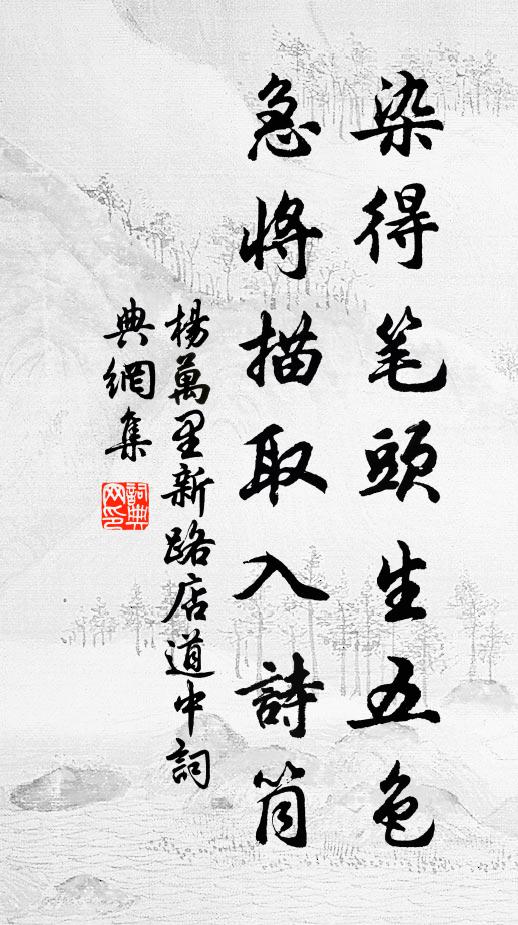 染得笔頭生五色
急将描取入詩筒
楊萬里新路店道中詞
典網集
詞典网印